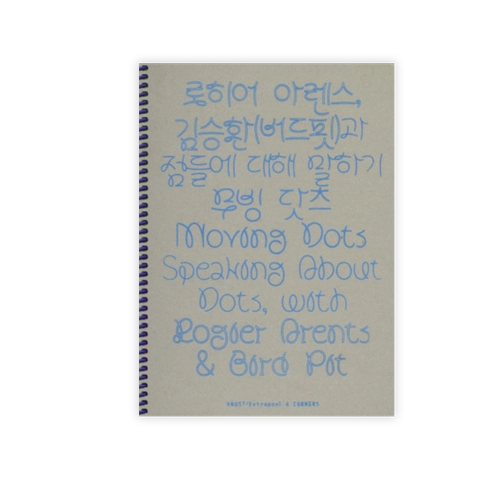 롯히어 아렌스,
김승환(버드폿)과
점들에 대해 말하기
무빙 닷츠
Moving Dots
Speaking About
Dots, with
Rogier Arents
& Bird Pit
KNUST/Extrapool & CORNERS